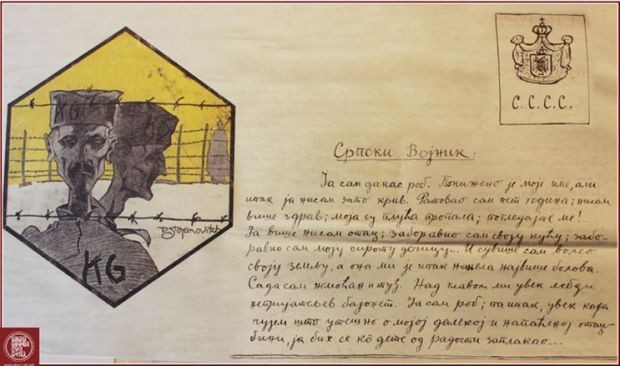 KG
KG
С.С.С.С.
Српски Војник.
Ја сам данас роб. Понижено је моје име, али
ипак ја нисам зато крив. Ратовао сам пет година; нисам
више здрав; моја су плућа пропала; погледајте ме!
Ја више нисам отац; заборавио сам своју кућу; забо-
равио сам моју сироту децицу... И сувише сам волео
своју земљу, а она ми је ипак нанела највише болова.
Сада сам немоћан и туђ. Над главом ми увек лебди
непријатељев бајонет. Ја сам роб; па ипак, увек када
чујем што утешно о мојој далекој и напаћеној отаџ-
бини, ја бих се кô дете од радости заплакао...